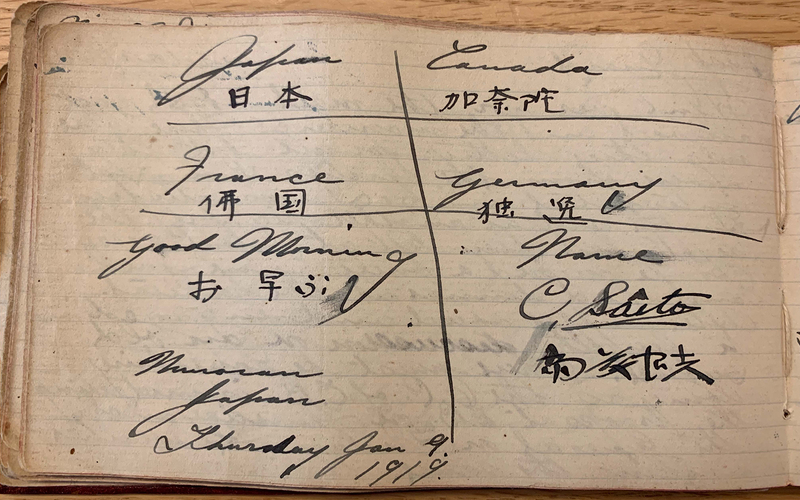 Japan
日本
Canada
加奈陀
France
佛国
Germany
独逸
Good Morning
お早ふ
Name
C. Saito
Muroran
Japan
Thursday Jan 9.
1919.